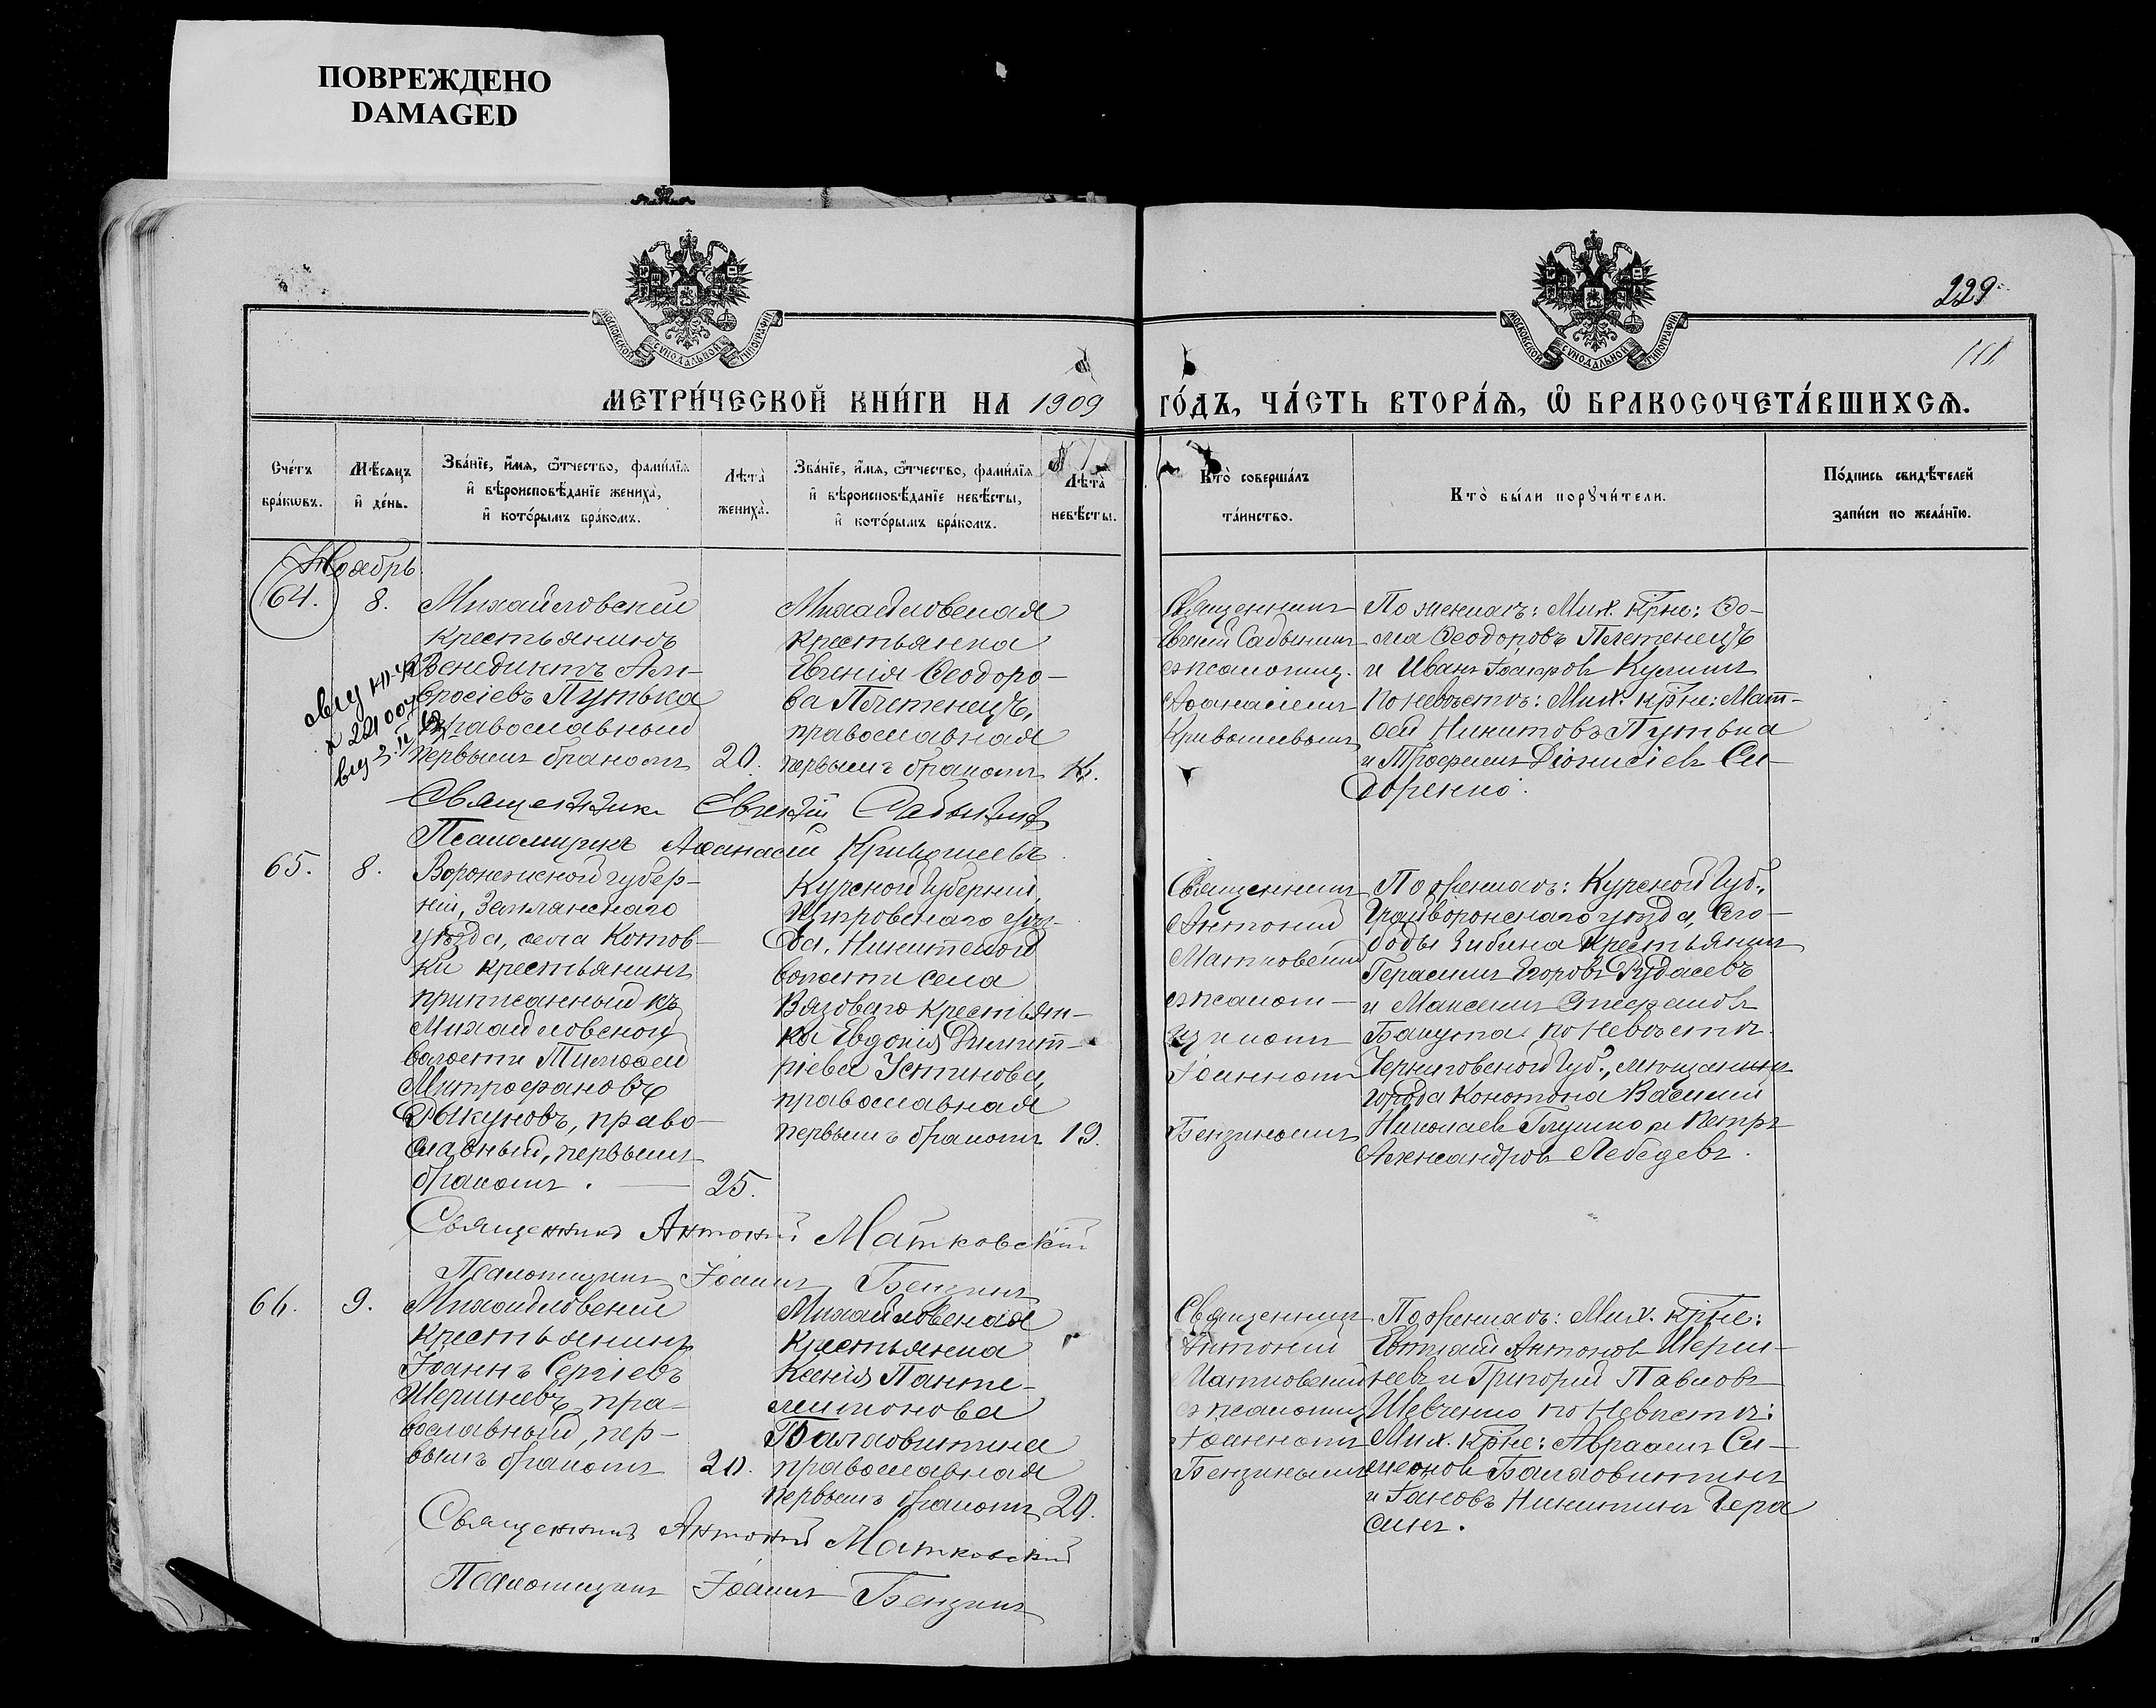 ПОВРЕЖДЕНО
DAMAGED
229
111
МОСКОВСКОЙ СѴНОДАЛЬНОЙ ТИПОГРАФІИ
МОСКОВСКОЙ СѴНОДАЛЬНОЙ ТИПОГРАФІИ
МЕТРИ́ЧЕСКОЙ КНИ́ГИ НА 1909 ГО́ДЪ, ЧА́СТЬ ВТОРА́Ѧ, Ѽ БРАКОСОЧЕТА́ВШИХСѦ.
Счéтъ
брáкѡвъ.
Мѣ́сяцъ
и҆ дéнь.
Звáнїе, и҆́мѧ, ѻ҆́тчество, фами́лїѧ
и҆ вѣроисповѣ́данїе женихà,
и҆ кото́рымъ брáкомъ.
Лѣ́та
женихà.
Звáнїе, и҆́мѧ, ѻ҆́тчество, фами́лїѧ
и҆ вѣроисповѣ́данїе невѣ́сты,
и҆ кото́рымъ брáкомъ.
Лѣ́та
невѣ́сты.
Кто̀ совершáлъ
тáинство.
Кто̀ бы́ли порꙋчи́тели.
По́дпись свидѣ́телей
зáписи по желáнїю.
Ноябрь
64.
8.
Михайловскій
крестьянинъ
Венедиктъ Ам-
вросіевъ Путька
православный
первымъ бракомъ
20.
Михайловская
крестьянка
Евгенія Ѳеодоро-
ва Плетенецъ,
православная
первымъ бракомъ
Священникъ
Евгеній Садынин
съ псаломщ.
Аѳанасіемъ
Кривошеевымъ
По женихѣ: Мих. крне: Ѳо-
ма Ѳеодоровъ Плетенецъ
и Иванъ
по невѣстѣ: Мих. крне: Мат-
ѳей Никитовъ Путька
и Трофимъ Діонисіевъ Си-
доренко.
Священникъ Евгеній
Псаломщикъ Аѳанасій Кривошеевъ
65.
8.
Воронежской губер-
ніи, Землянскаго
уѣзда, села Котов-
ки крестьянинъ
приписанный къ
Михайловской
волости Тимоѳей
Митрофановъ
Дыкуновъ, право-
славный, первымъ
бракомъ.
25.
Курской Губерніи,
Щигровскаго уѣз-
да, Никитской
волости села
Вязоваго крестьян-
ка Евдокія Димит-
ріева Устинова,
православная
первымъ бракомъ 19.
Священникъ
Антоній
Матковскій
съ псалом-
щикомъ
Іоанномъ
Бензинымъ
По женихѣ: Курской Губ.,
Грайворонскаго уѣзда, Сло-
боды Зибина крестьянинъ
Герасимъ Егоровъ Рудасевъ
и Максимъ Стефановъ
Бакута. по невѣстѣ
Черниговской Губ., мѣщанинъ
города Конотопа Василій
Николаевъ Глушко и Петръ
Александровъ Лебедевъ.
Священникъ Антоній Матковскій
Псаломщикъ Іоаннъ Бензинъ
66.
9.
Михайловскій
крестьянинъ
Іоаннъ Сергіевъ
Шершневъ, пра-
вославный, пер-
вымъ бракомъ
20.
Михайловская
крестьянка
Ксенія Панте-
леимонова
Балаовитина
православная
первымъ бракомъ 20.
Священникъ
Антоній
Матковскій
съ псаломщ.
Іоанномъ
Бензинымъ
По женихѣ: Мих. крне:
Евтихій Антоновъ Шерш-
невъ и Григорій Павловъ
Шевченко по невѣстѣ:
Мих. крне: Авраамъ Си-
меоновъ Балаовитинъ
и Іаковъ Никитинъ Гера
синъ.
Священникъ Антоній Матковскій
Псаломщикъ Іоаннъ Бензинъ